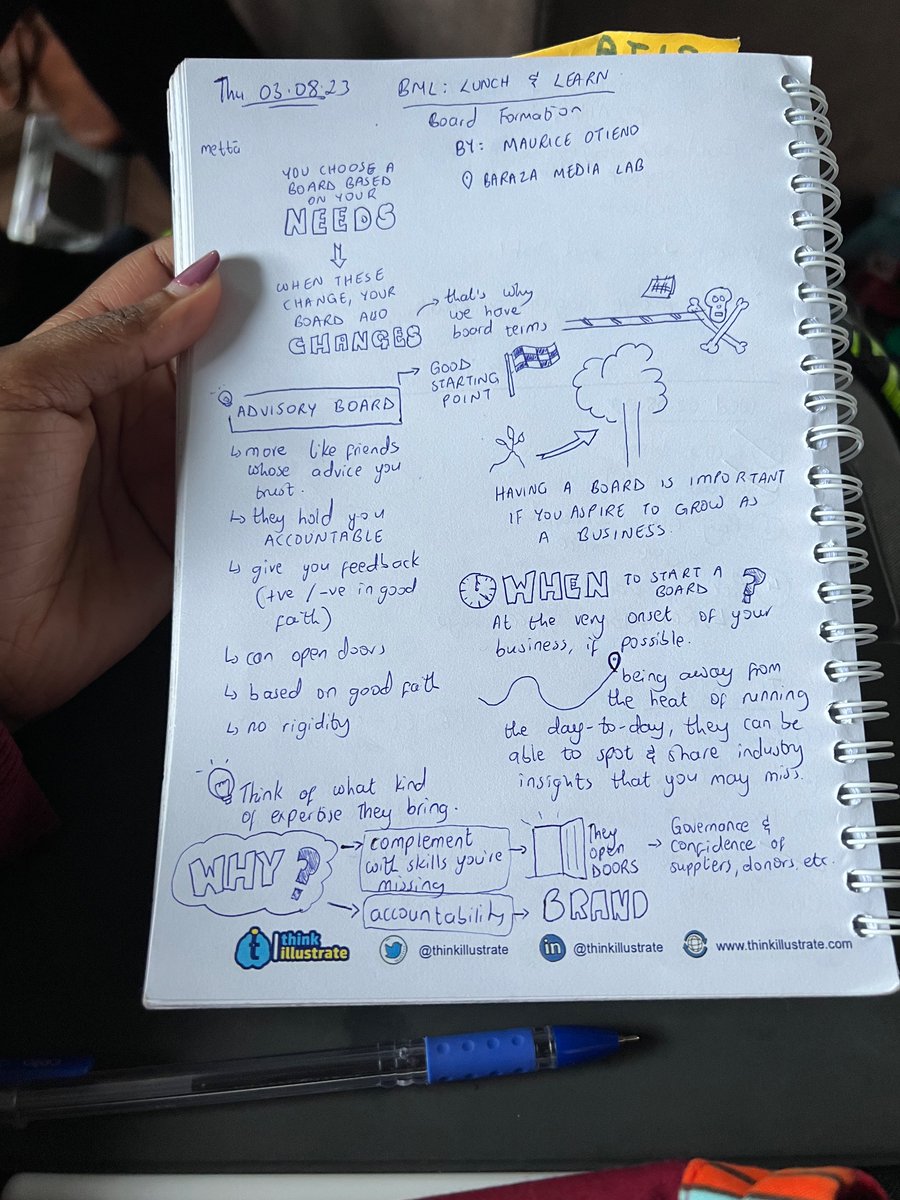 Thu 03.08.23
BML: LUNCH & LEARN
Board Formation
BY: MAURICE OTIENO
BARAZA MEDIA LAB
mettā
YOU CHOOSE A
BOARD BASED
ON YOUR
NEEDS
WHEN THESE
CHANGE, YOUR
BOARD ALSO
CHANGES
that's why
we have
board terms
ADVISORY BOARD
GOOD
STARTING
POINT
↳ more like friends
whose advice you
trust.
↳ they hold you
ACCOUNTABLE
↳ give you feedback
(+ve / -ve in good
faith)
↳ can open doors
↳ based on good faith
↳ no rigidity
HAVING A BOARD IS IMPORTANT
IF YOU ASPIRE TO GROW AS
A BUSINESS.
WHEN TO START A
BOARD ?
At the very onset of your
business, if possible.
being away from
the heat of running
the day-to-day, they can be
able to spot & share industry
insights that you may miss.
Think of what kind
of expertise they bring.
WHY?
complement
with skills you're
missing
They
open
DOORS
Governance &
confidence of
suppliers, donors, etc.
accountability
BRAND
think
illustrate
@thinkillustrate
@thinkillustrate
www.thinkillustrate.com